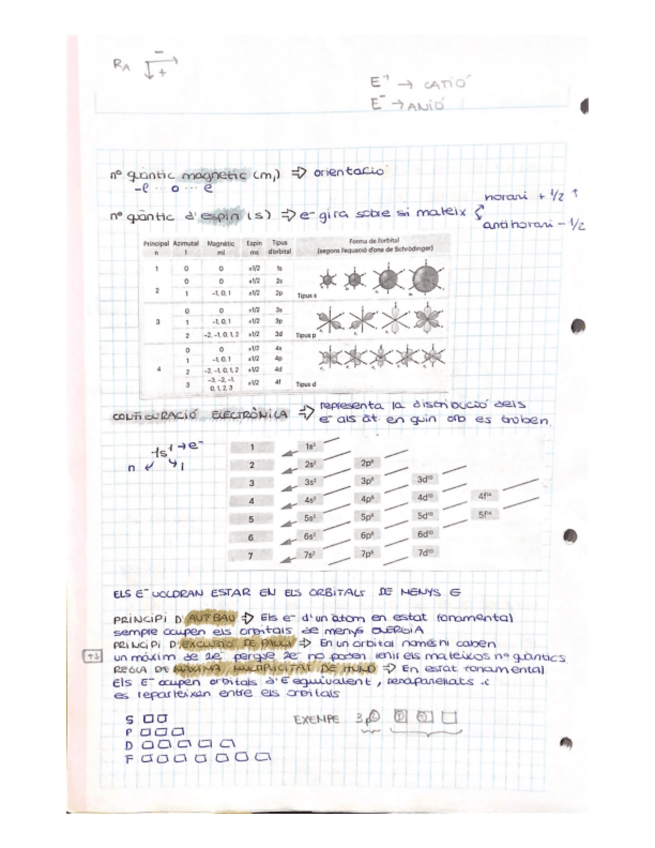 RA − +
E⁺ → CATIÓ
E⁻ → ANIÓ
nº quàntic magnètic (ml) ⇒ orientació
-l ·· 0 ··· l
nº quàntic d'espín (s) ⇒ e⁻ gira sobre si mateix
horari + 1/2 ↑
antihorari - 1/2
Principal n Azimutal l Magnètic ml Espín ms Tipus d'orbital Forma de l'orbital (segons l'equació d'ona de Schrödinger)
1 0 0 ±1/2 1s
2 0 0 ±1/2 2s
1 -1, 0, 1 ±1/2 2p
Tipus s
3 0 0 ±1/2 3s
1 -1, 0, 1 ±1/2 3p
2 -2, -1, 0, 1, 2 ±1/2 3d
Tipus p
4 0 0 ±1/2 4s
1 -1, 0, 1 ±1/2 4p
2 -2, -1, 0, 1, 2 ±1/2 4d
3 -3, -2, -1, 0, 1, 2, 3 ±1/2 4f
Tipus d
CONFIGURACIÓ ELECTRÒNICA ⇒ representa la distribució dels
e⁻ als àt. en quin orb es troben
1s¹ → e⁻
n l
1 1s²
2 2s² 2p⁶
3 3s² 3p⁶ 3d¹⁰
4 4s² 4p⁶ 4d¹⁰ 4f¹⁴
5 5s² 5p⁶ 5d¹⁰ 5f¹⁴
6 6s² 6p⁶ 6d¹⁰
7 7s² 7p⁶ 7d¹⁰
ELS E⁻ VOLDRAN ESTAR EN ELS ORBITALS DE MENYS E
PRINCIPI D'AUFBAU ⇒ Els e⁻ d'un àtom en estat fonamental
sempre ocupen els orbitals de menys ENERGIA
PRINCIPI D'EXCLUSIÓ DE PAULI ⇒ En un orbital només hi caben
↑↓ un màxim de 2e⁻ perquè 2e⁻ no poden tenir els mateixos nº quàntics
REGLA DE MÀXIMA MULTIPLICITAT DE HUND ⇒ En estat fonamental
Els E⁻ ocupen orbitals d'E equivalent, desaparellats i
es reparteixen entre els orbitals
S
P
D
F
EXEMPE 3p